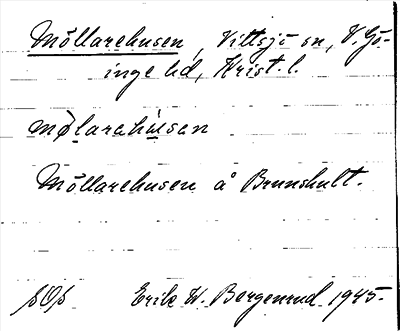 Möllarehusen, Vittsjö sn, V. Gö-
inge hd, Krist. l.
mølarehusen
Möllarehusen å Brunshult.
Erik W. Bergenrud 1945.